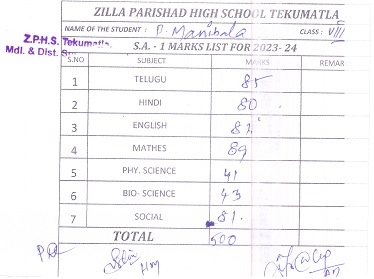 ZILLA PARISHAD HIGH SCHOOL TEKUMATLA
NAME OF THE STUDENT : P. Manibala CLASS : VIII
Z.P.H.S. Tekumatla
S.A. - 1 MARKS LIST FOR 2023- 24
Mdl. & Dist.
S.NO SUBJECT MARKS REMAR
1 TELUGU 85
2 HINDI 80
3 ENGLISH 82
4 MATHES 89
5 PHY. SCIENCE 41
6 BIO- SCIENCE 43
7 SOCIAL 81
TOTAL 500
HM